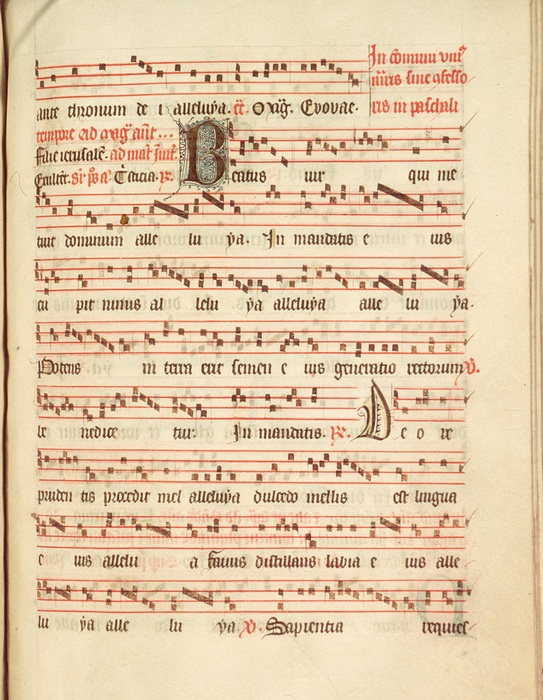 In cōmuni vniꝰ
ante thronum de i alleluya. Evovae. ris in paschali
tempore ad
filie ierusalē.
Beatus uir qui me
tuit dominum alle lu ya. In mandatis e ius
cu pit nimis al lelu ya alleluya alle lu ya.
Potens in terra erit semen e ius generatio rectorum ℣.
be nedice tur. In mandatis. ℟. De o re
pruden tis procedit mel alleluya dulcedo mellis est lingua
e ius allelu a fauus distillans labia e ius alle
lu ya alle lu ya. ℣. Sapientia requies